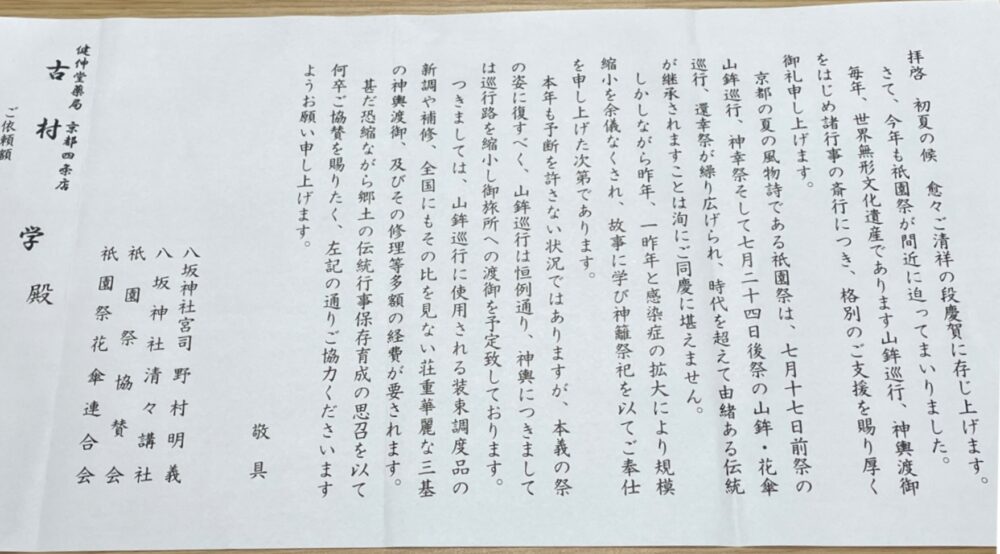 拝啓　初夏の候　愈々ご清祥の段慶賀に存じ上げます。
さて、今年も祇園祭が間近に迫ってまいりました。
毎年、世界無形文化遺産であります山鉾巡行、神輿渡御
をはじめ諸行事の斎行につき、格別のご支援を賜り厚く
御礼申し上げます。
京都の夏の風物詩である祇園祭は、七月十七日前祭の
山鉾巡行、神幸祭そして七月二十四日後祭の山鉾・花傘
巡行、還幸祭が繰り広げられ、時代を超えて由緒ある伝統
が継承されますことは洵にご同慶に堪えません。
しかしながら昨年、一昨年と感染症の拡大により規模
縮小を余儀なくされ、故事に学び神籬祭祀を以てご奉仕
を申し上げた次第であります。
本年も予断を許さない状況ではありますが、本義の祭
の姿に復すべく、山鉾巡行は恒例通り、神輿につきまして
は巡行路を縮小し御旅所への渡御を予定致しております。
つきましては、山鉾巡行に使用される装束調度品の
新調や補修、全国にもその比を見ない荘重華麗な三基
の神輿渡御、及びその修理等多額の経費が要されます。
甚だ恐縮ながら郷土の伝統行事保存育成の思召を以て
何卒ご協賛を賜りたく、左記の通りご協力くださいます
ようお願い申し上げます。
敬具
八坂神社宮司　野村明義
八坂神社清々講社
祇園祭協賛会
祇園祭花傘連合会
健伸堂薬局　京都四条店
古村　学　殿
ご依頼額